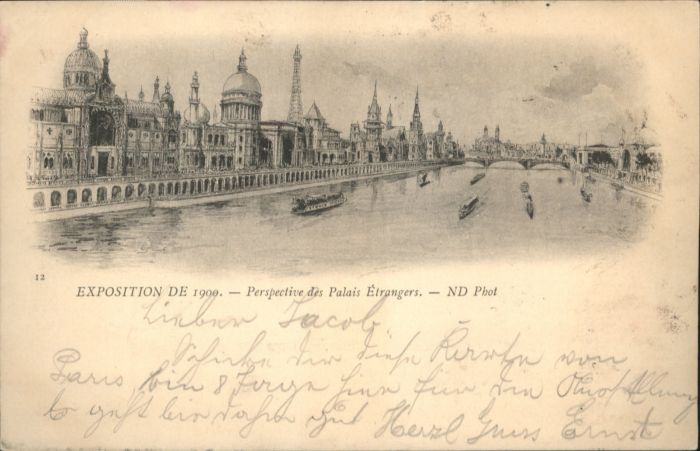 12
EXPOSITION DE 1900. — Perspective des Palais Étrangers. — ND Phot
Lieber Jacob
Schicke dir diese Karte von
Paris bin 8 Tage hier für die Ausstellung
Es geht bis dahin gut Herzl Gruss Ernst